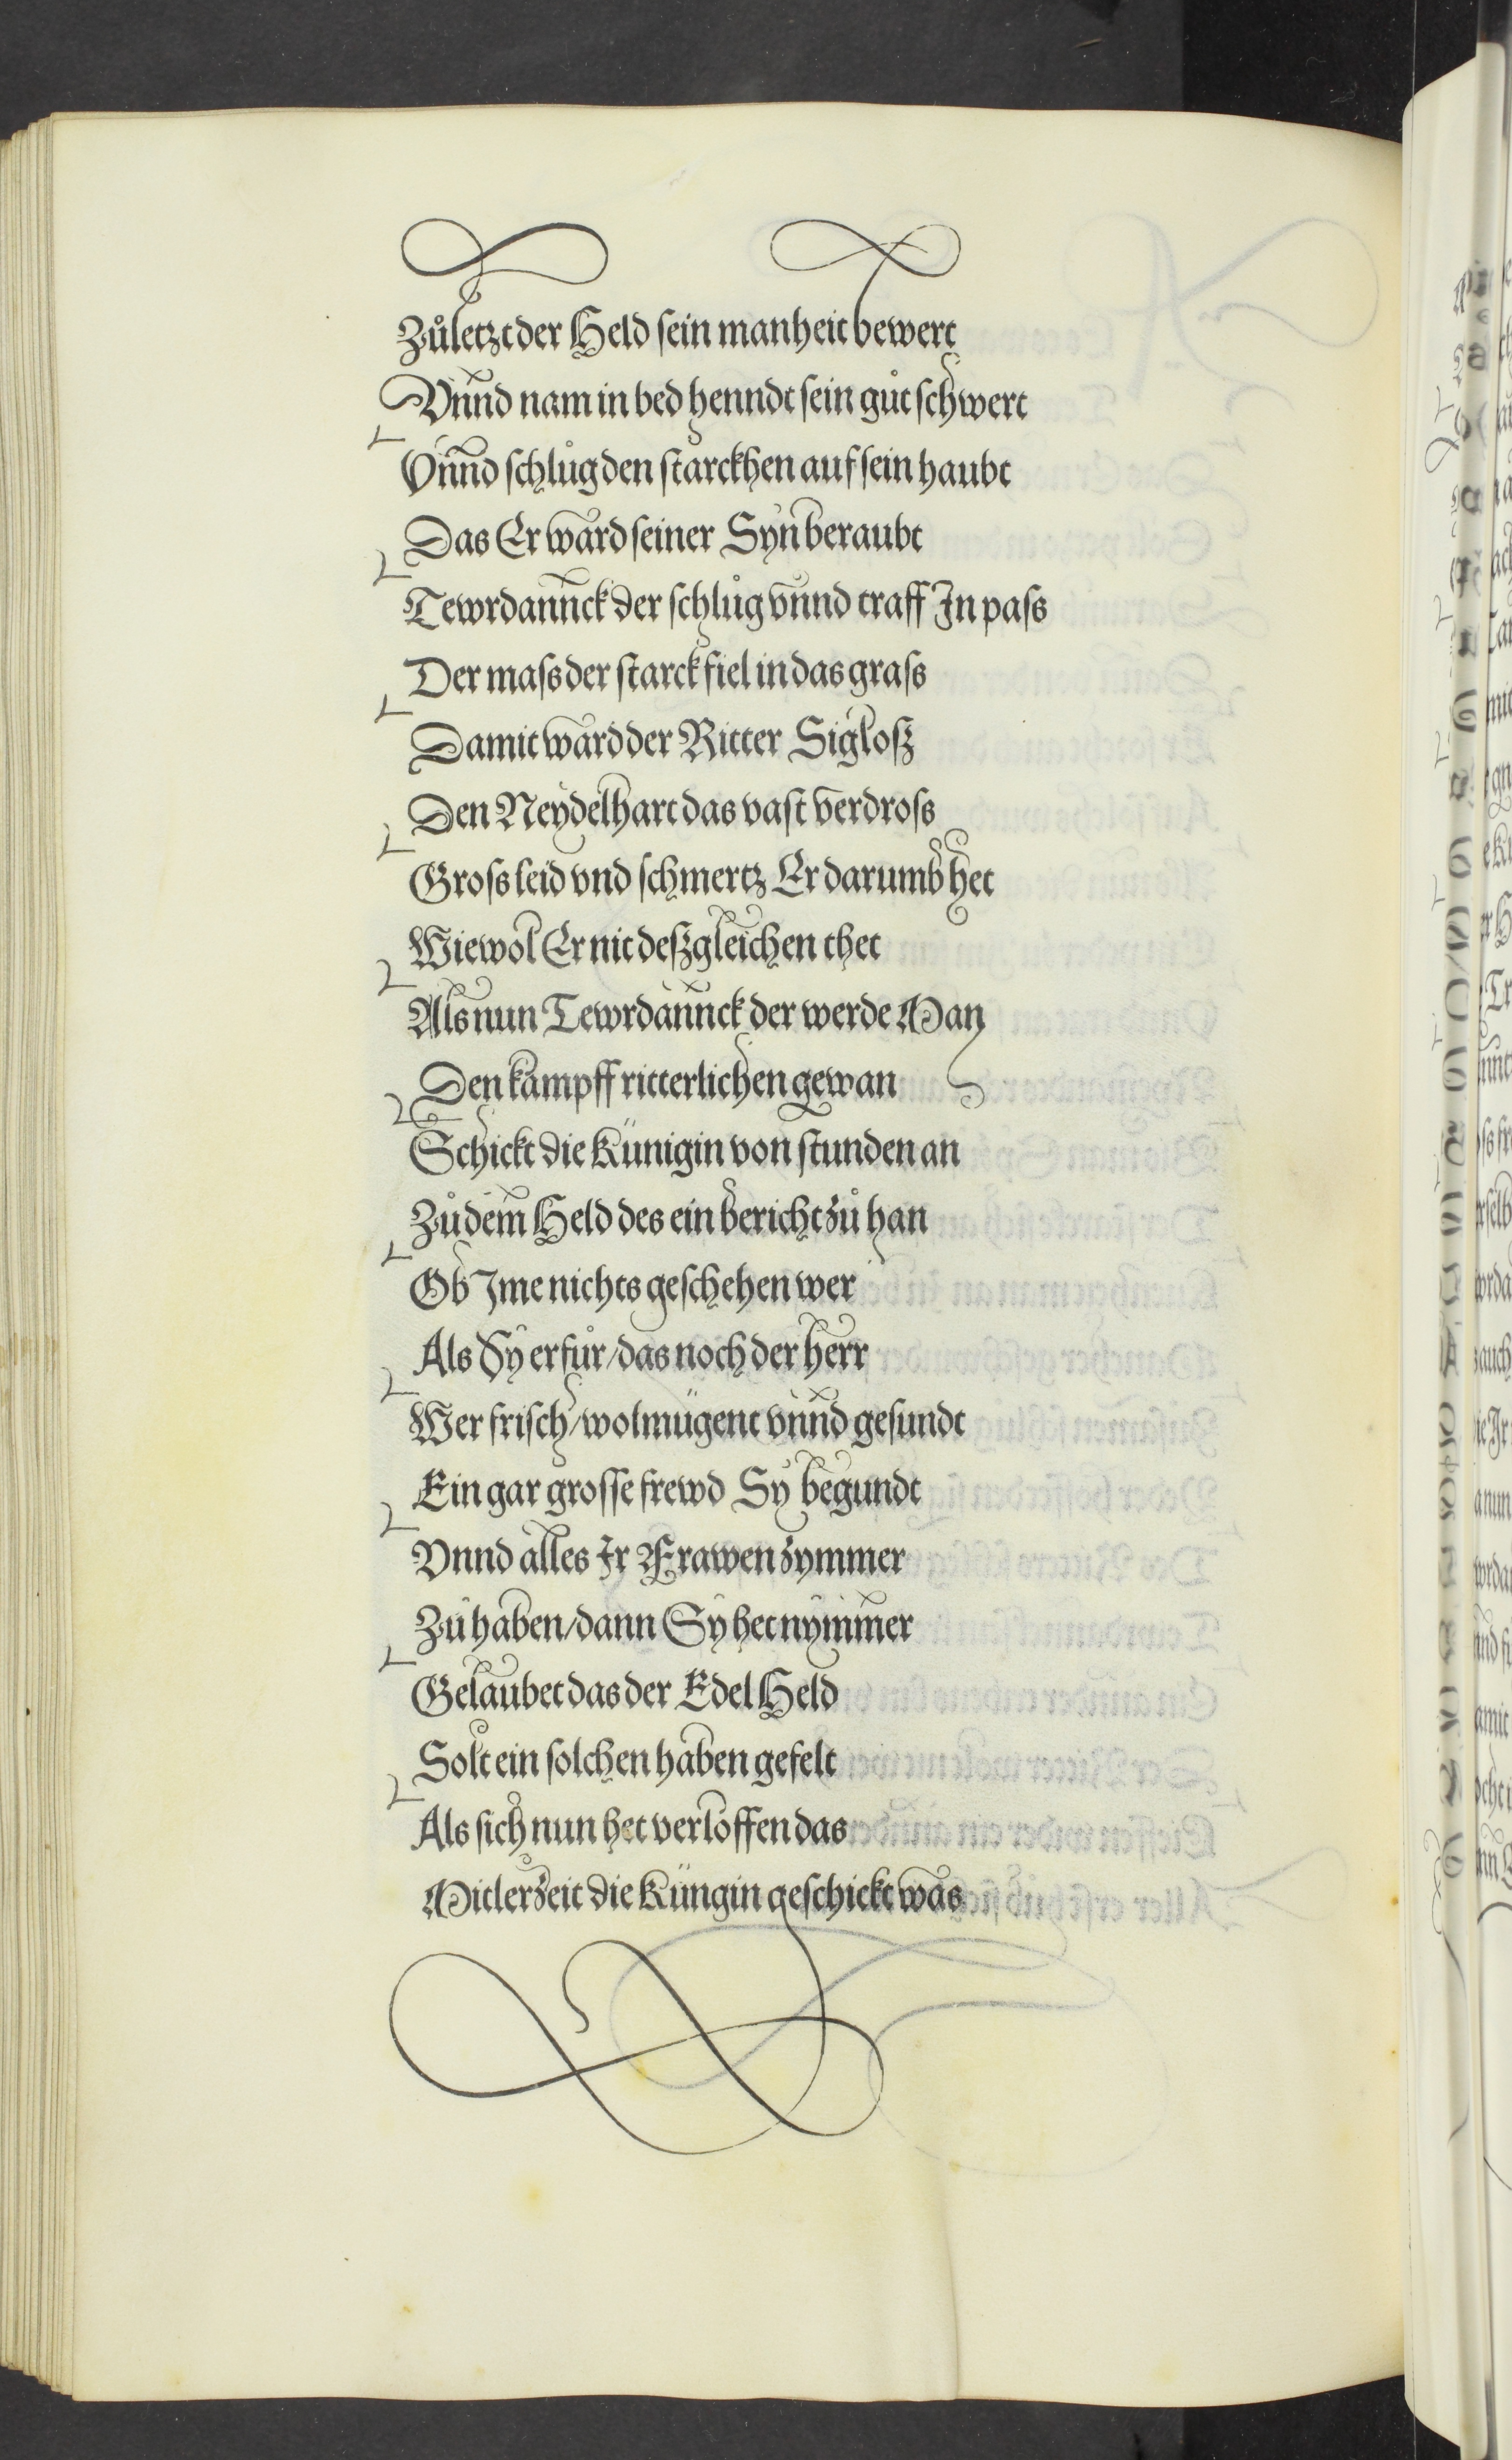 Zůletzt der Held ſein manheit bewert
Vnnd nam in bed henndt ſein gůt ſchwert
Vnnd ſchlůg den ſtarckhen auf ſein haubt
Das Er ward ſeiner Syn beraubt
Tewrdannck der ſchlůg vnnd traff In paſs
Der maſs der ſtarck fiel in das graſs
Damit ward der Ritter Sigloſz
Den Neydelhart das vaſt verdroſs
Groſs leid vnd ſchmertz Er darumb het
Wiewol Er nit deſzgleichen thet
Als nun Tewrdannck der werde Man
Den kampff ritterlichen gewan
Schickt die Künigin von ſtunden an
Zů dem Held des ein bericht zů han
Ob Ime nichts geſchehen wer
Als Sy erfůr/das noch der herr
Wer friſch/wolmügent vnnd geſundt
Ein gar groſſe frewd Sy begundt
Vnnd alles Ir Frawenzymmer
Zů haben/dann Sy het nymmer
Gelaubet das der Edel Held
Solt ein ſolchen haben gefelt
Als ſich nun het verloffen das
Mitlerzeit die Küngin geſchickt was